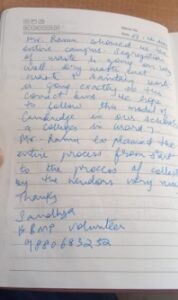 Mr. Ramu showed us the
entire campus. Segregation
of waste is going on very
well. Very neat
waste & sanitary waste
is going exactly as the
concept is. We hope
to follow this model of
Cambridge in our schools
& colleges in ward.
Mr. Ramu explained the
entire process from start
to the process of collection
by the vendors very nicely
Thanks
Sandhya
KRMP Volunteer